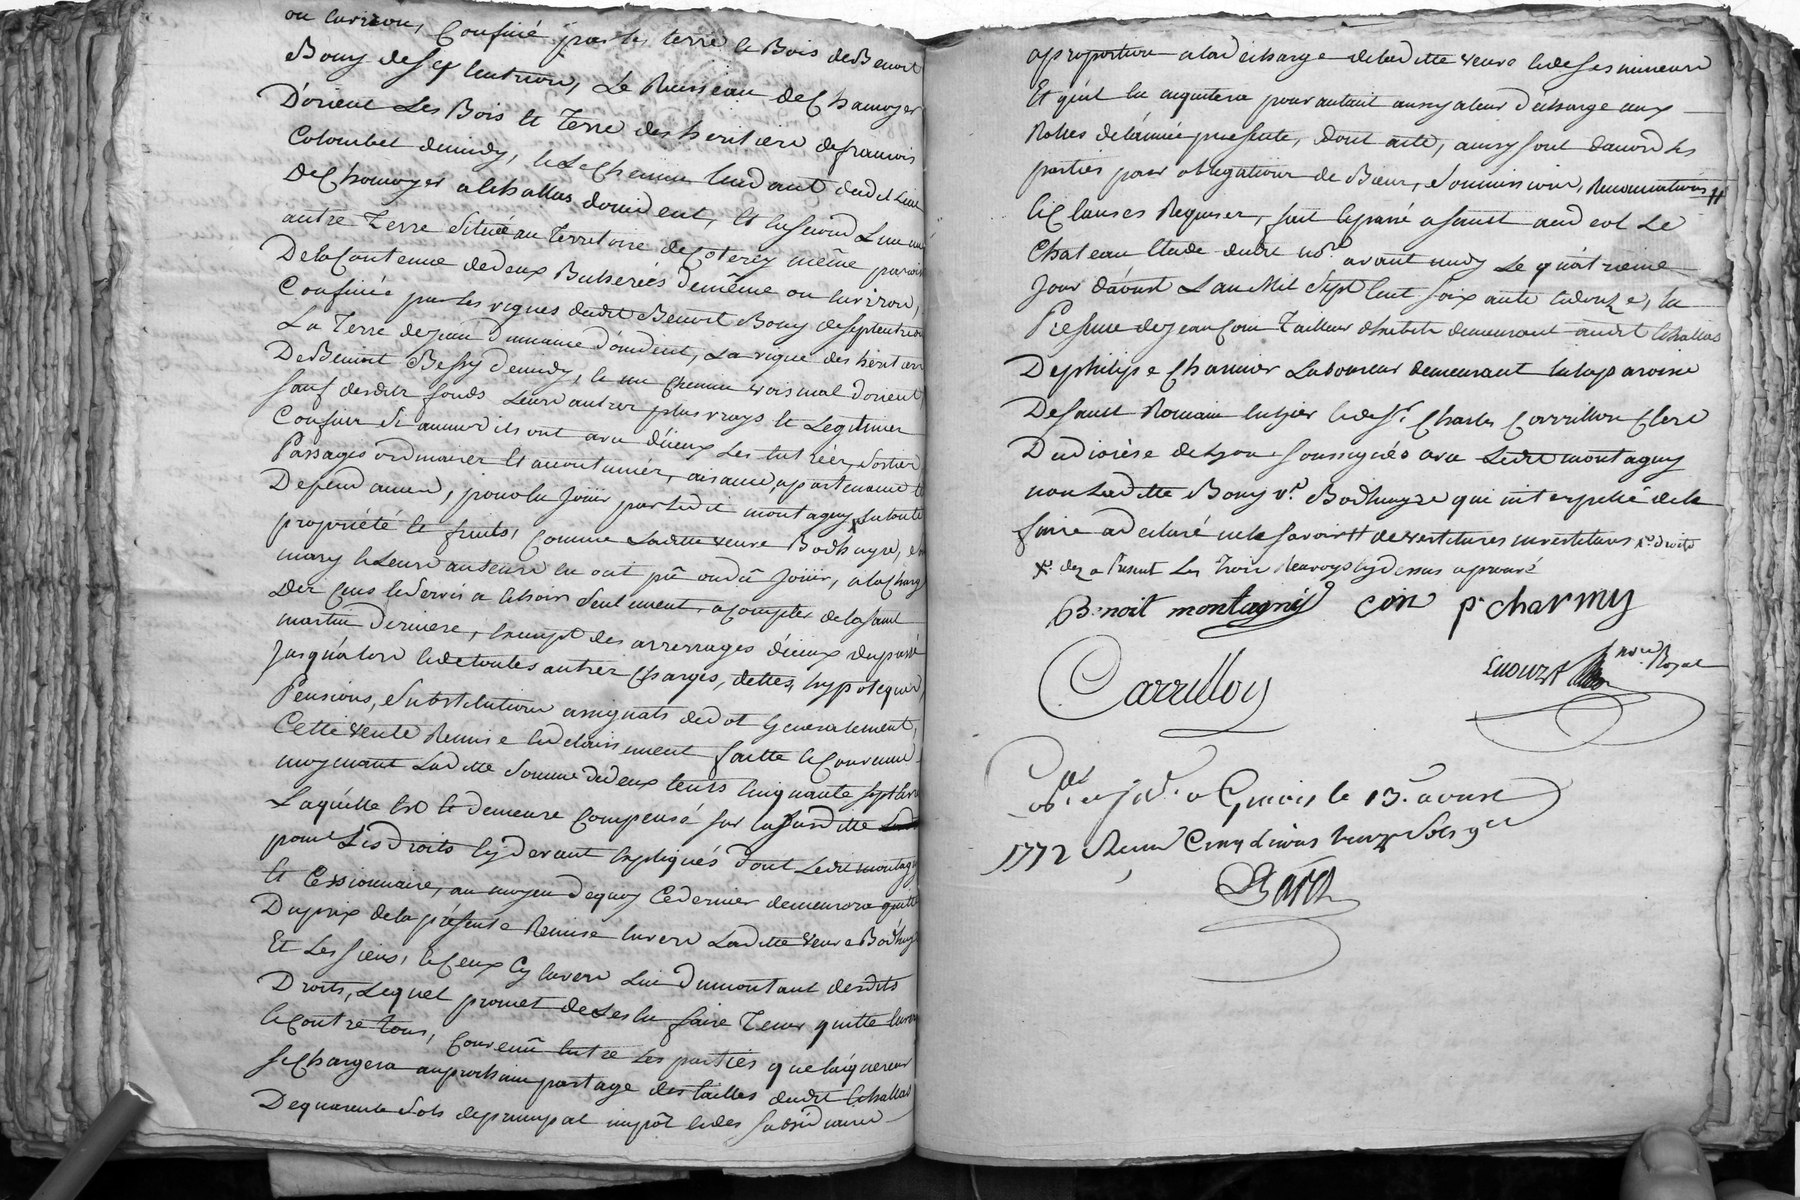 ou environ, Confiné par les terre et Bois de Benoit
Bony de septentrion, Le Ruisseau de Chamoyer
D'orient Les Bois et Terre des heritiers de francois
Colombet de midy, et Le Chemin tendant dudit Lieu
de Chamoyer a Echallas d'occident, Et la seconde Lieu une
autre Terre Située au Territoire de Coterey même paroisse
De la Contenue de deux Bicherées de même ou environ,
Confinée par les vignes dudit Benoit Bony de septentrion
La Terre de jean D'occident, La vigne des heritiers
De Benoit Bessy de midy, et un Chemin voisinal d'orient
sauf desdits fonds Leurs autres plus vrays et Legitimes
Confins Si aucuns ils ont avec d'iceux Les entrées, Sorties
Passages ordinaires Et accoutumés, aisance, apartenance et
Dependances, pour en Jouir par ledit montagny en toute
propriété et fruits, Comme Laditte veuve Bodhuyre, son
mary et Leurs auteurs en ont pû ou dû Jouir, a la Charge
Des Cens et Servis a echoir Seulement a compter de la saint
martin Derniere, exempt des arrerages d'iceux du passé
Jusqu'alors et de toutes autres Charges, dettes, hypoteques,
Pensions, Substitutions assignats de dot Generalement,
Cette vente Remise et delaissement faitte et Convenue
moyennant Laditte Somme de deux Cents Cinquante sept livres
Laquelle est et demeure Compensé sur la susditte
pour Les Droits cy devant Expliqués Dont Ledit montagny
Est Cessionnaire, au moyen de quoy Ce dernier demeurera quitte
Du prix de la présente Remise Envers Laditte veuve Bodhuyre
Et Les Siens, et Ceux Cy Envers Lui Du montant desdits
Droits, Lequel promet de Les en faire Tenir quitte Envers
et Contre tous, Convenû Entre Les parties que l'aquereur
se Chargera au prochain partage des tailles dudit Echallas
De quarente Sols de principal impôt et des Subsidiaires
a proportion a la décharge de laditte veuve et de ses mineurs
Et qu'il en aquitera pour autant aussy a leur Décharge aux
Rolles de l'année presente, dont acte, ainsy sont d'accord Les
parties par obligations de Biens, Soumissions, Renonciations #
et Clauses Requises, fait et passé a saint andeol Le
Chateau Etude dudit no.re avant midy Le quatrieme
Jour d'aoust L'an Mil Sept Cent soixante et douze, En
Presence de jean Coin Tailleur d'habits demeurant audit Echallas
De philipe Charmier Laboureur demeurant en la paroisse
De saint Romain en gier et de S.r Charles Carrillon Clerc
Du diocèse de Lyon soussignés avec Ledit montagny
non Laditte Bony v.e Bodhuyre qui interpellée de le
faire a declaré ne le savoir # de vestitures investitures
x dez a Present Les Trois Renvoys cy dessus aprouvé
B.noit montagny coin p charmy
Carrillon
not.re Royal
a Givors le 13.e aoust
1772 Receu Cinq livres